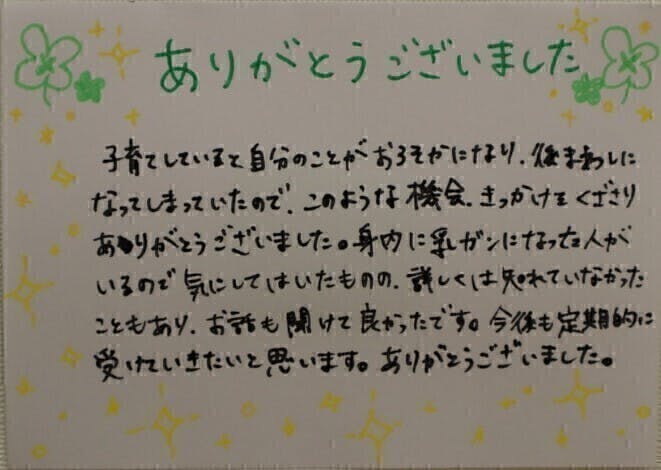 ありがとうございました
子育てしていると自分のことがおろそかになり、後まわしに
なってしまっていたので、このような機会、きっかけをくださり
ありがとうございました。身内に乳ガンになった人が
いるので気にしてはいたものの、詳しくは知れていなかった
こともあり、お話も聞けて良かったです。今後も定期的に
受けていきたいと思います。ありがとうございました。